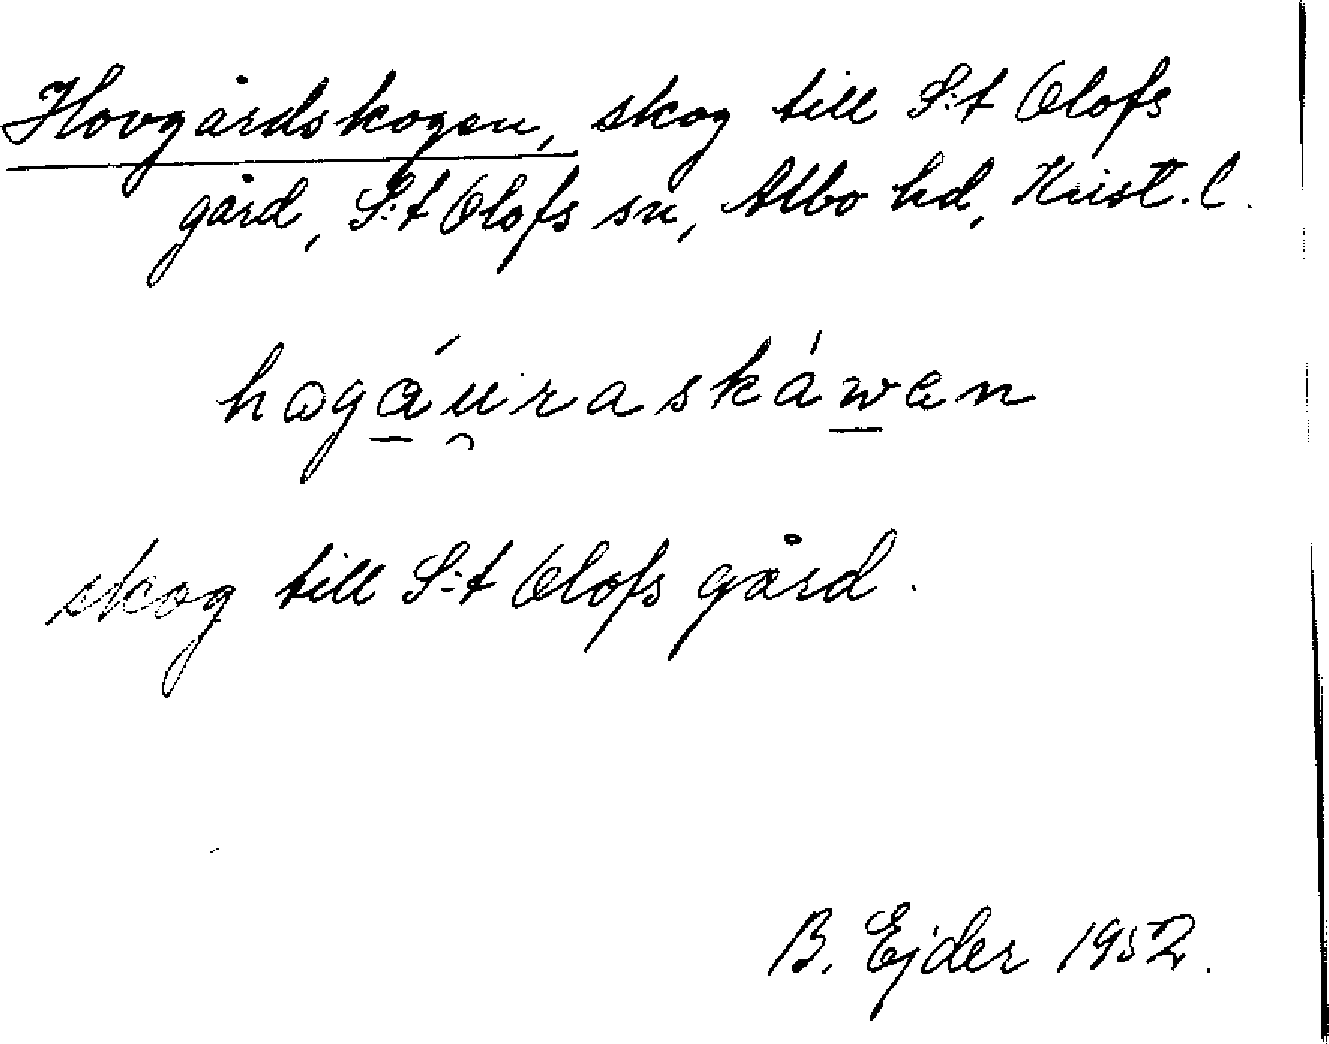 Hovgårdskogen, skog till S:t Olofs
gård, S:t Olofs sn, Albo hd, Krist. l.
hogáu̯raskáwen
skog till S:t Olofs gård.
B. Ejder 1952.